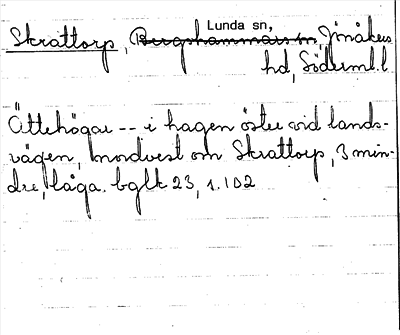 Lunda sn,
Skrattorp, (Bergshammars sn, Jönåkers
hd, Söderml. l
Ättehögar -- i hagen öster vid lands-
vägen, nordvest om Skrattorp, 3 min-
dre, låga. bglk 23, s. 102